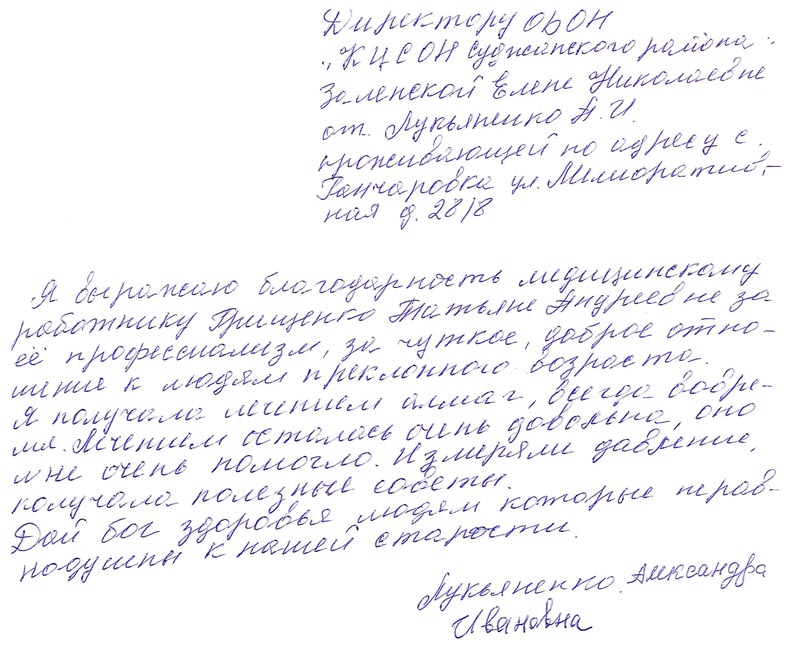 Директору ОБОН
"КЦСОН Суджанского района"
Заленской Елене Николаевне
от Лукьяненко А.И.
проживающей по адресу с.
Ганчаровка ул. Мелиоратив-
ная д. 28/8
Я выражаю благодарность медицинскому
работнику Грищенко Татьяне Андреевне за
её профессиализм, за чуткое, доброе отно-
шение к людям преклонного возроста.
Я получала лечением алмаг, всегда вовре-
мя. Лечением осталась очень довольна, оно
мне очень помогло. Измеряли давление,
получала полезные советы.
Дай бог здоровья людям которые нерав-
нодушны к нашей старости.
Лукьяненко Александра
Ивановна